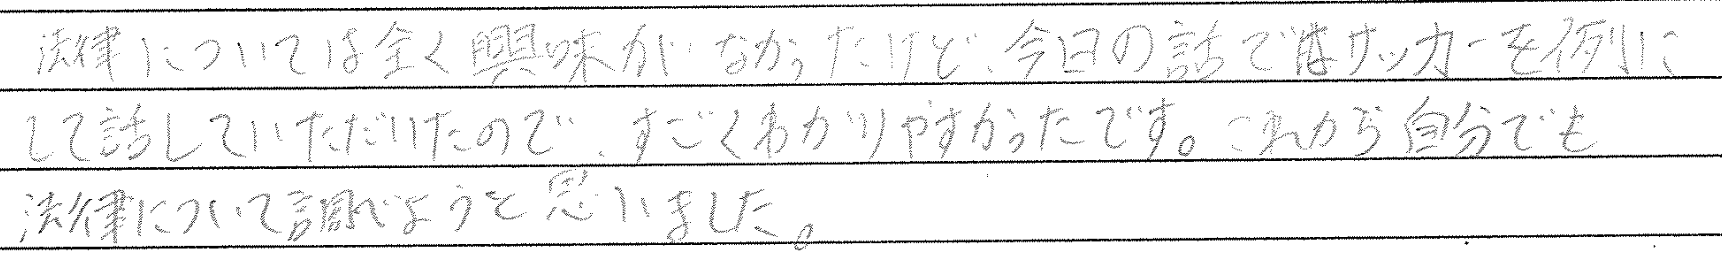 法律については全く興味がなかったけど、今日の話ではサッカーを例に
して話していただいたので、すごくわかりやすかったです。これから自分でも
法律について調べようと思いました。